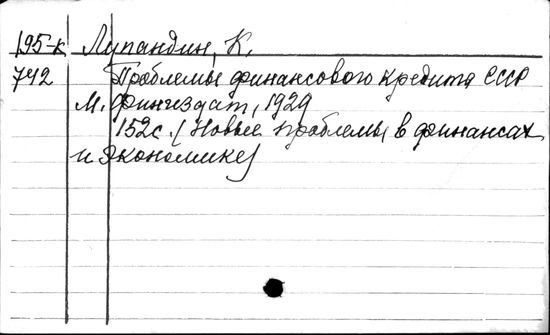 195-к Лупандин, К.
742 Проблемы финансового кредита СССР
М. Финиздат, 1929
152с. (Новые проблемы в финансах
и экономике)